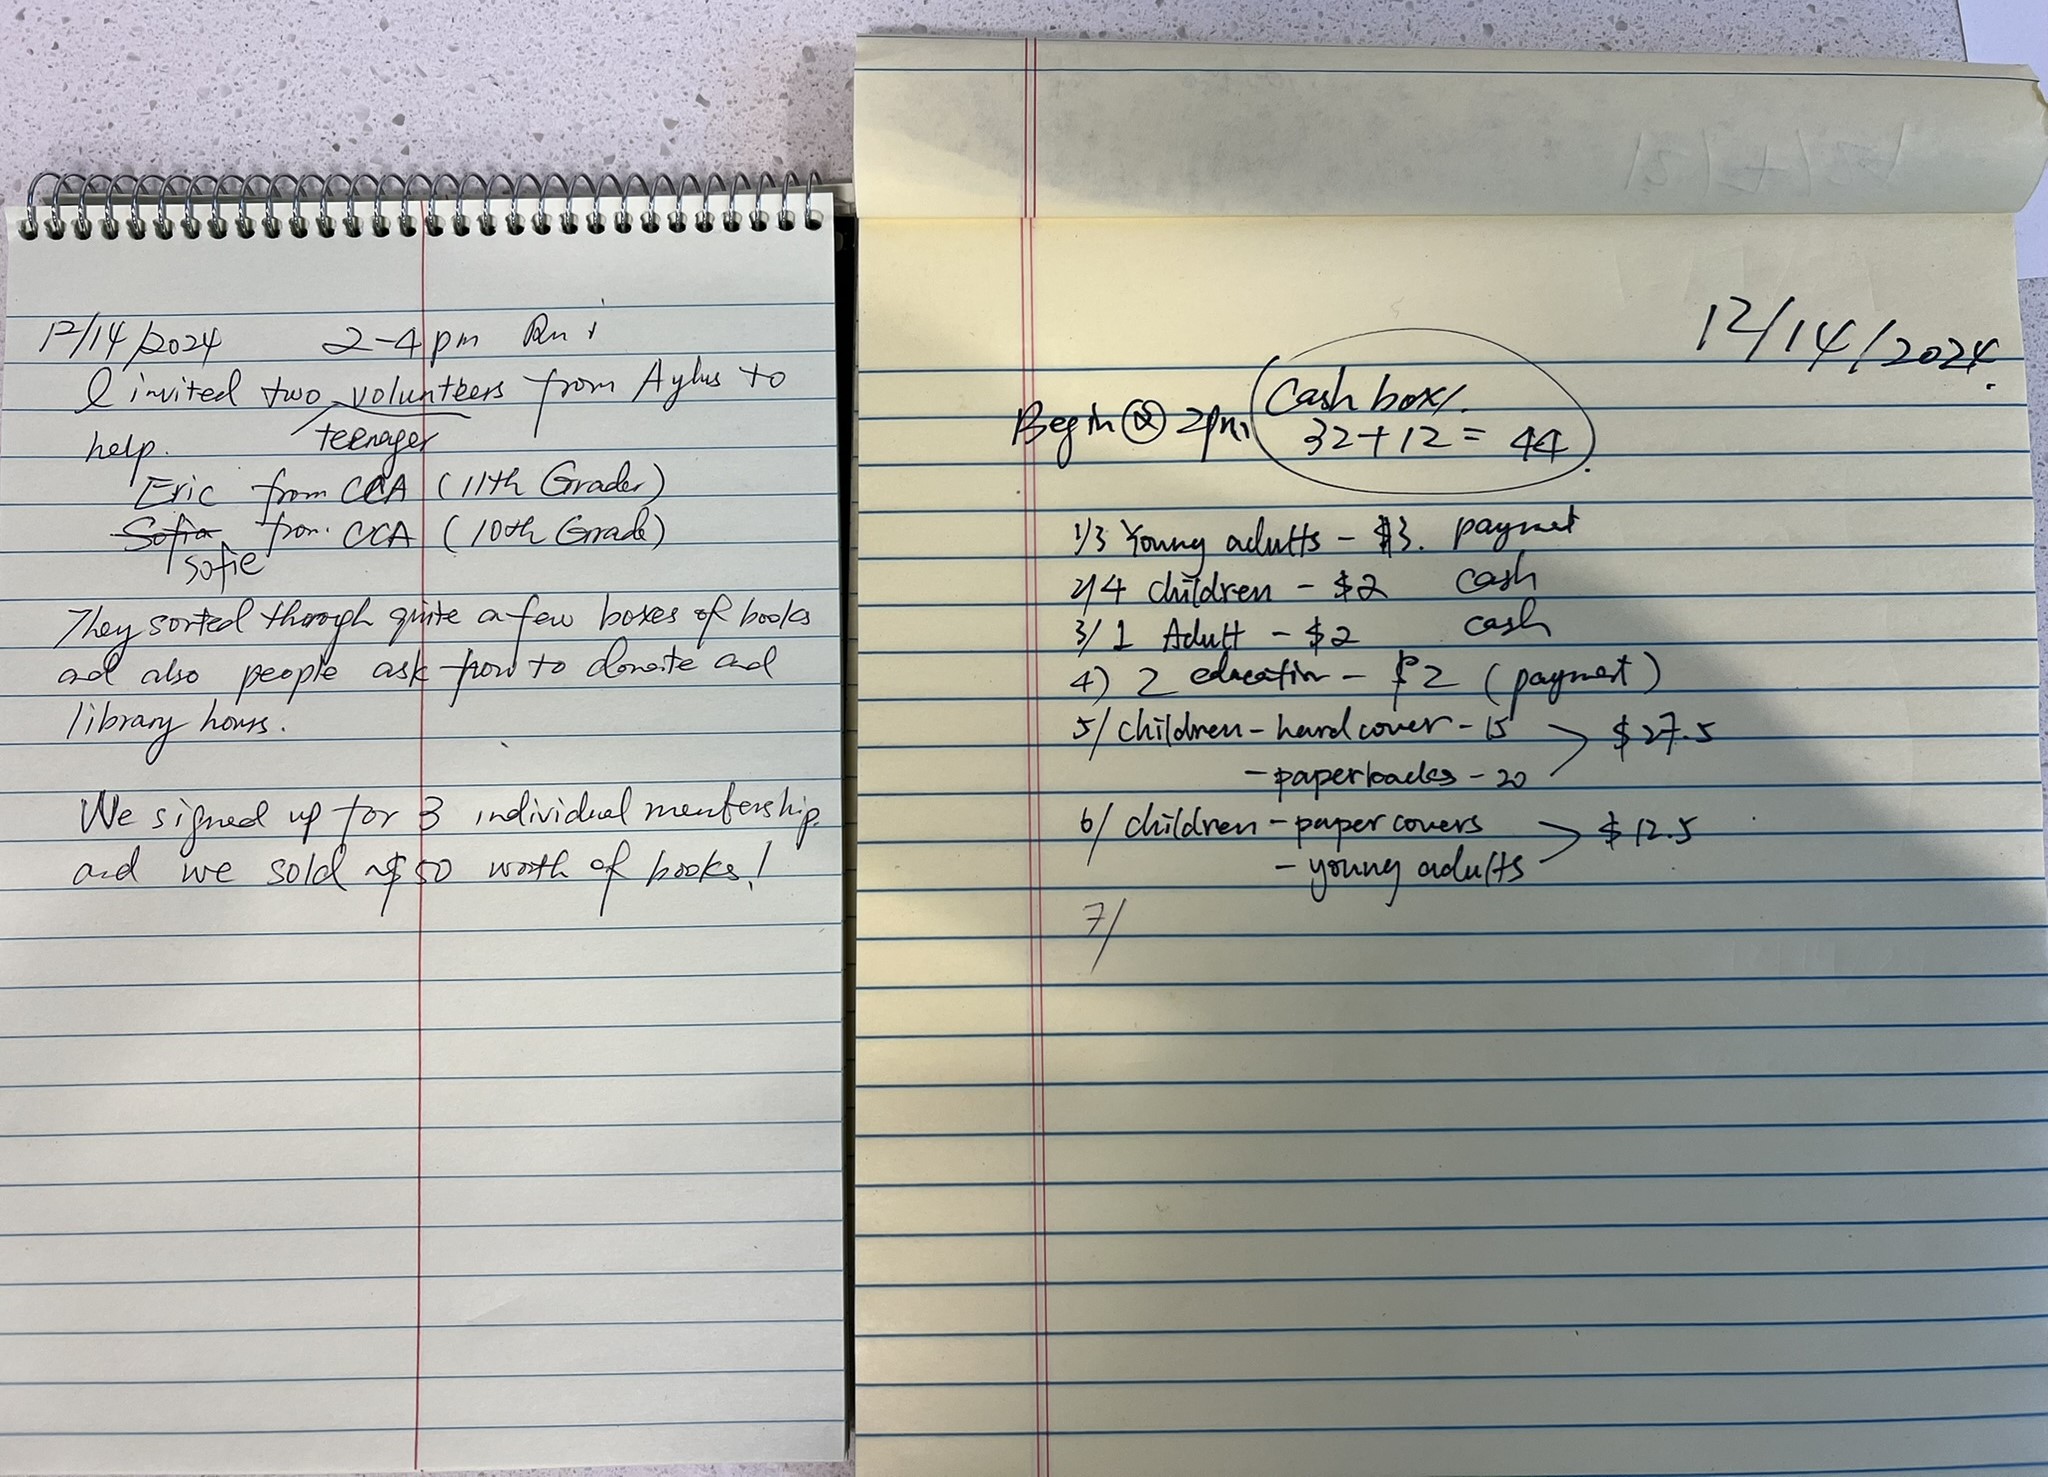 12/14/2024 2-4pm
I invited two volunteers from Aylus to
teenager
help.
Eric from CCA (11th Grader)
Sofia from CCA (10th Grade)
Sofie
They sorted through quite a few boxes of books
and also people ask how to donate and
library hours.
We signed up for 3 individual membership.
and we sold ~$50 worth of books!
12/14/2024.
Begin @ 2pm
Cash box/.
32+12=44
1/3 Young adults - $3. paymet
2/4 children - $2 cash
3/1 Adult - $2 cash
4) 2 education - $2 (paymet)
5/ children - hard cover - 15 > $27.5
- paperbacks - 20
6/ children - paper covers > $12.5
- young adults
7/